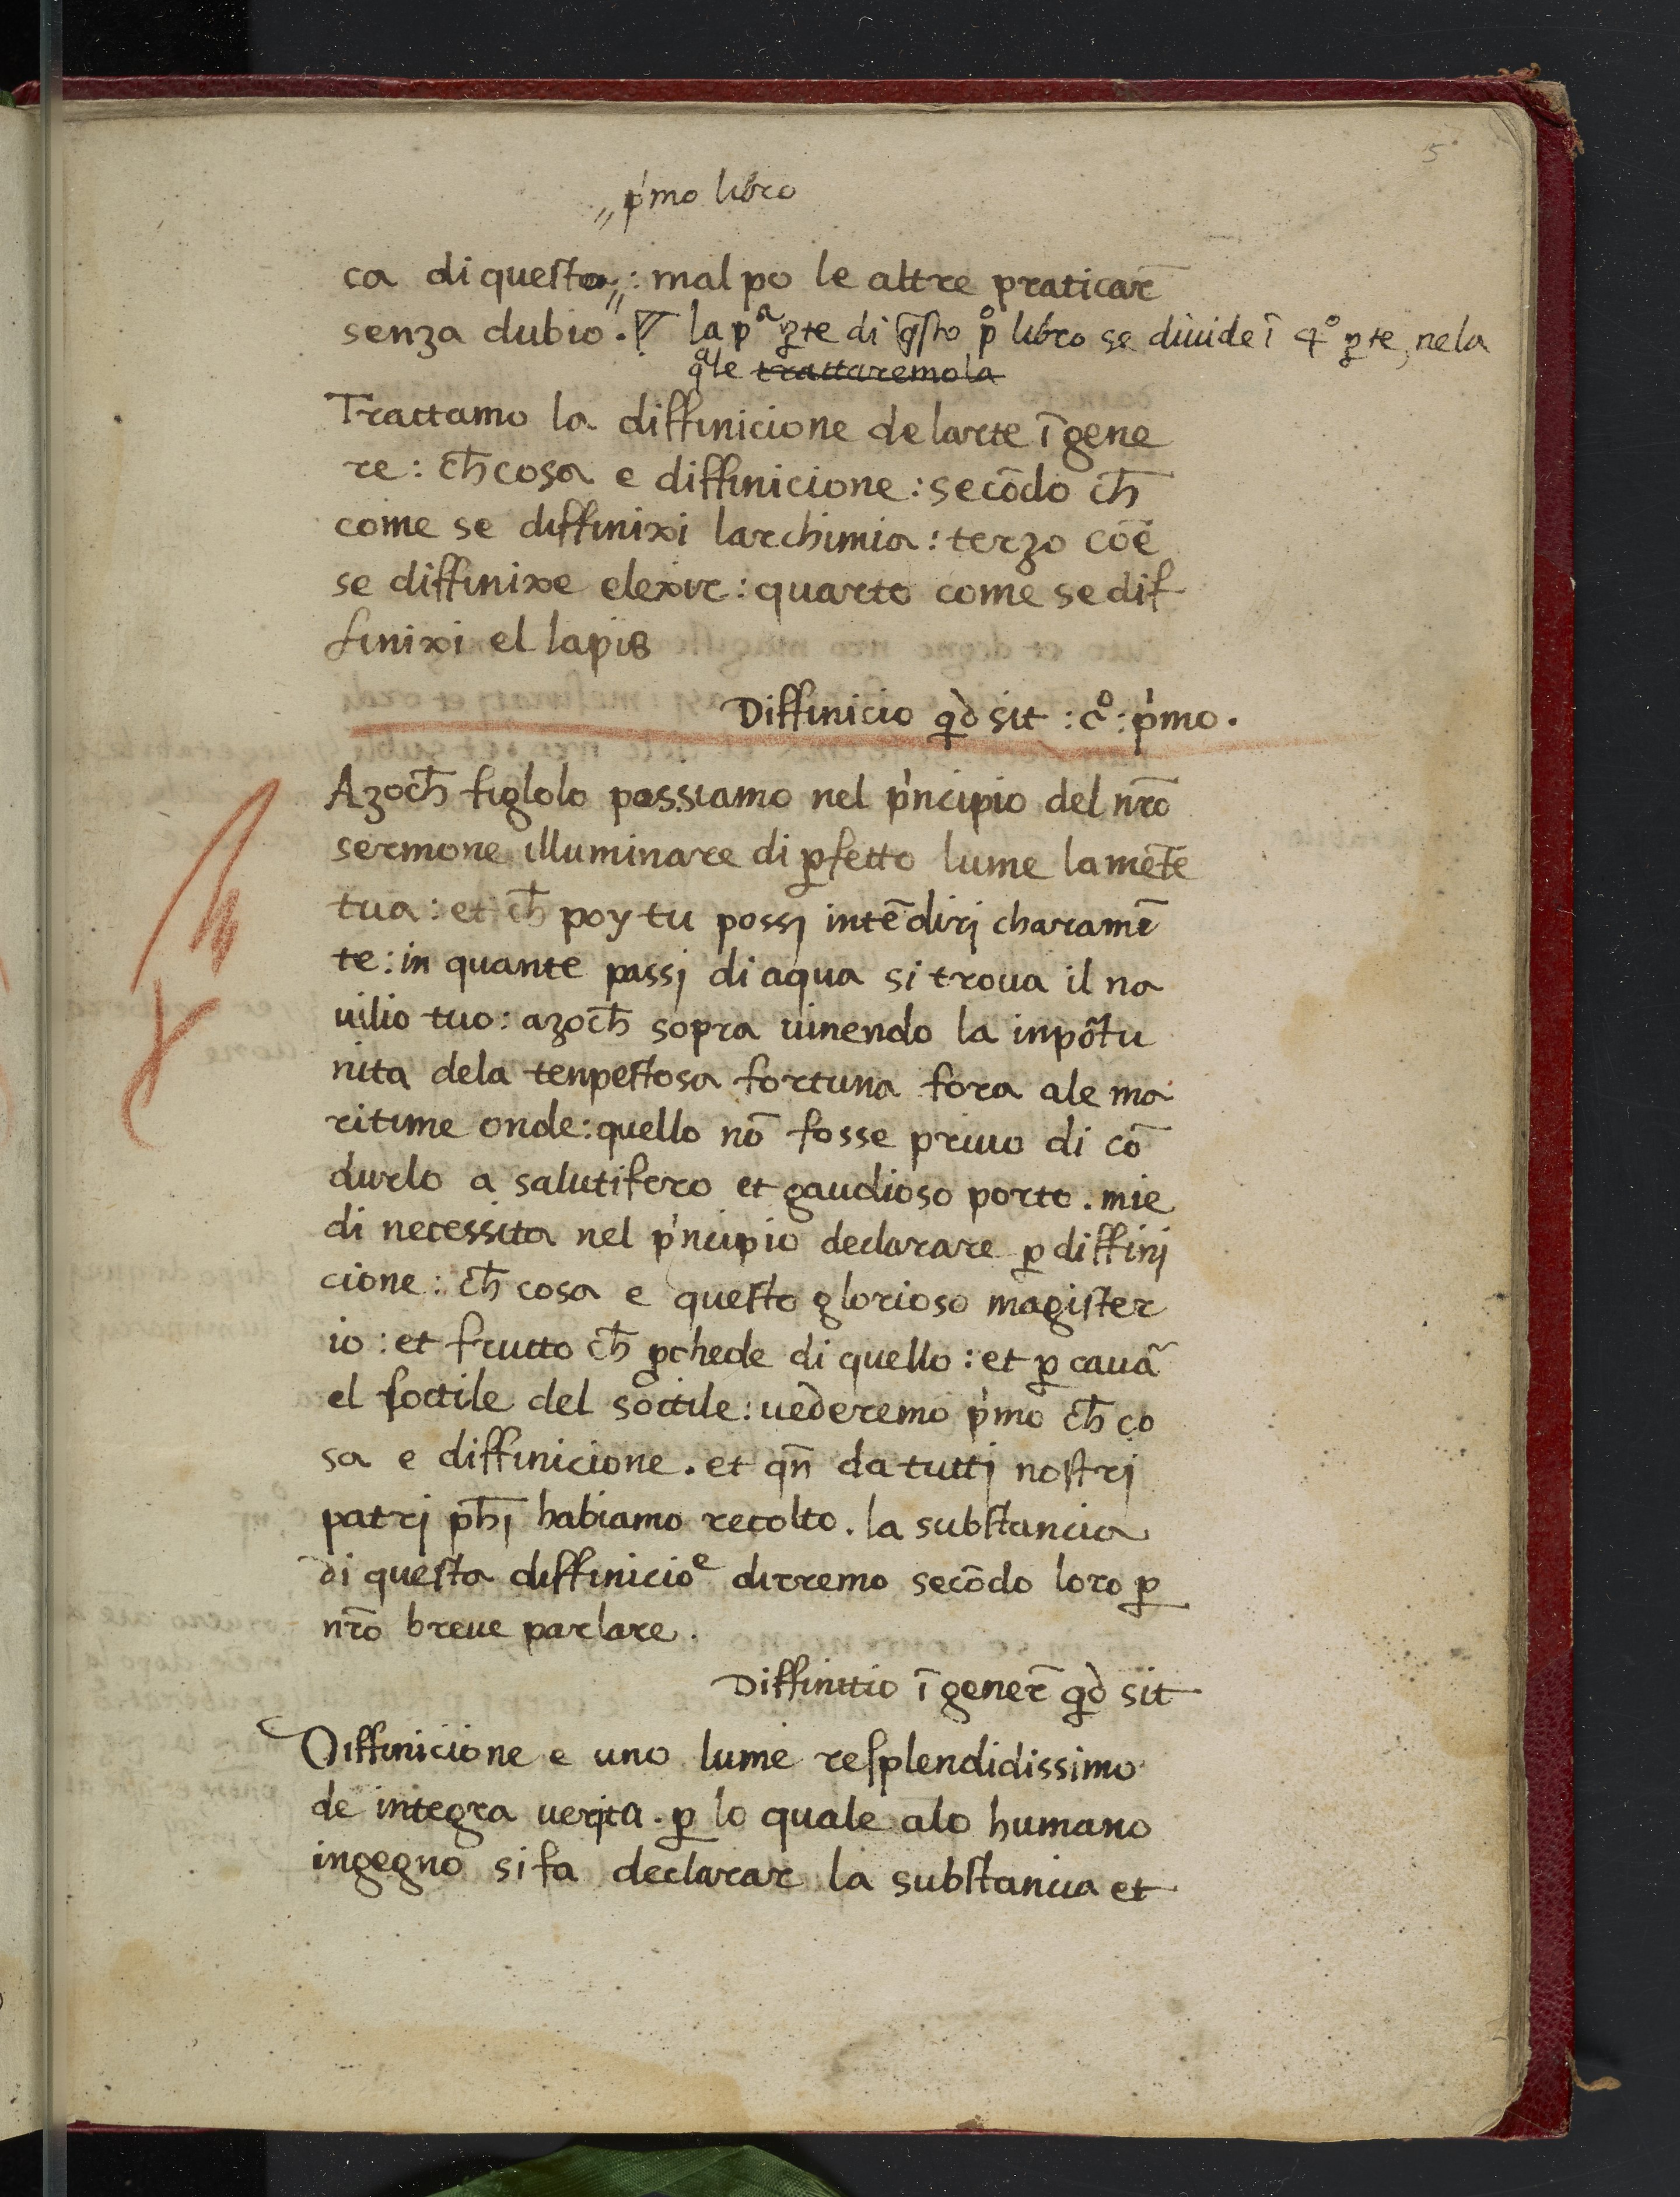 5
„ p'mo libro
ca di questo„: mal po le altre praticar̄
senza dubio. la pᵃ ꝑte di q̄sto p° libro se diuide ī 4° ꝑte, nela
qᵃle trattaremola
Trattamo la diffinicione de larte ī gene
re: ch̄ cosa e diffinicione: secōdo ch̄
come se diffinixi larchimia: terzo cōē
se diffinixe elexir: quarto come se dif
finixi el lapis
Diffinicio qd̄ sit: c°: p'mo.
Azoch̄ figlolo possiamo nel p'ncipio del nr̄o
sermone illuminare di ꝑfetto lume la mēte
tua: et ch̄ poy tu possj intēdirj charamē
te: in quante passj di aqua si troua il na
uilio tuo: azoch̄ sopra uinendo la inpōtu
nita dela tenpestosa fortuna fora ale ma
ritime onde: quello nō fosse priuo di cō
durlo a salutifero et gaudioso porto. mie
di necessita nel p'ncipio declarare ꝑ diffinj
cione: ch̄ cosa e questo glorioso magister
io: et frutto ch̄ ꝓchede di quello: et ꝑ cauā
el soctile del soctile: uederemo p'mo ch̄ co
sa e diffinicione. et qn̄ da tuttj nostrj
patrj ph̄j habiamo recolto. la substancia
di questa diffinicioᵉ dirremo secōdo loro ꝑ
nr̄o breue parlare.
Diffinitio ī gener̄ qd̄ sit
Diffinicione e uno lume resplendidissimo
de integra uerita. ꝑ lo quale alo humano
ingegno si fa declarar la substancia et